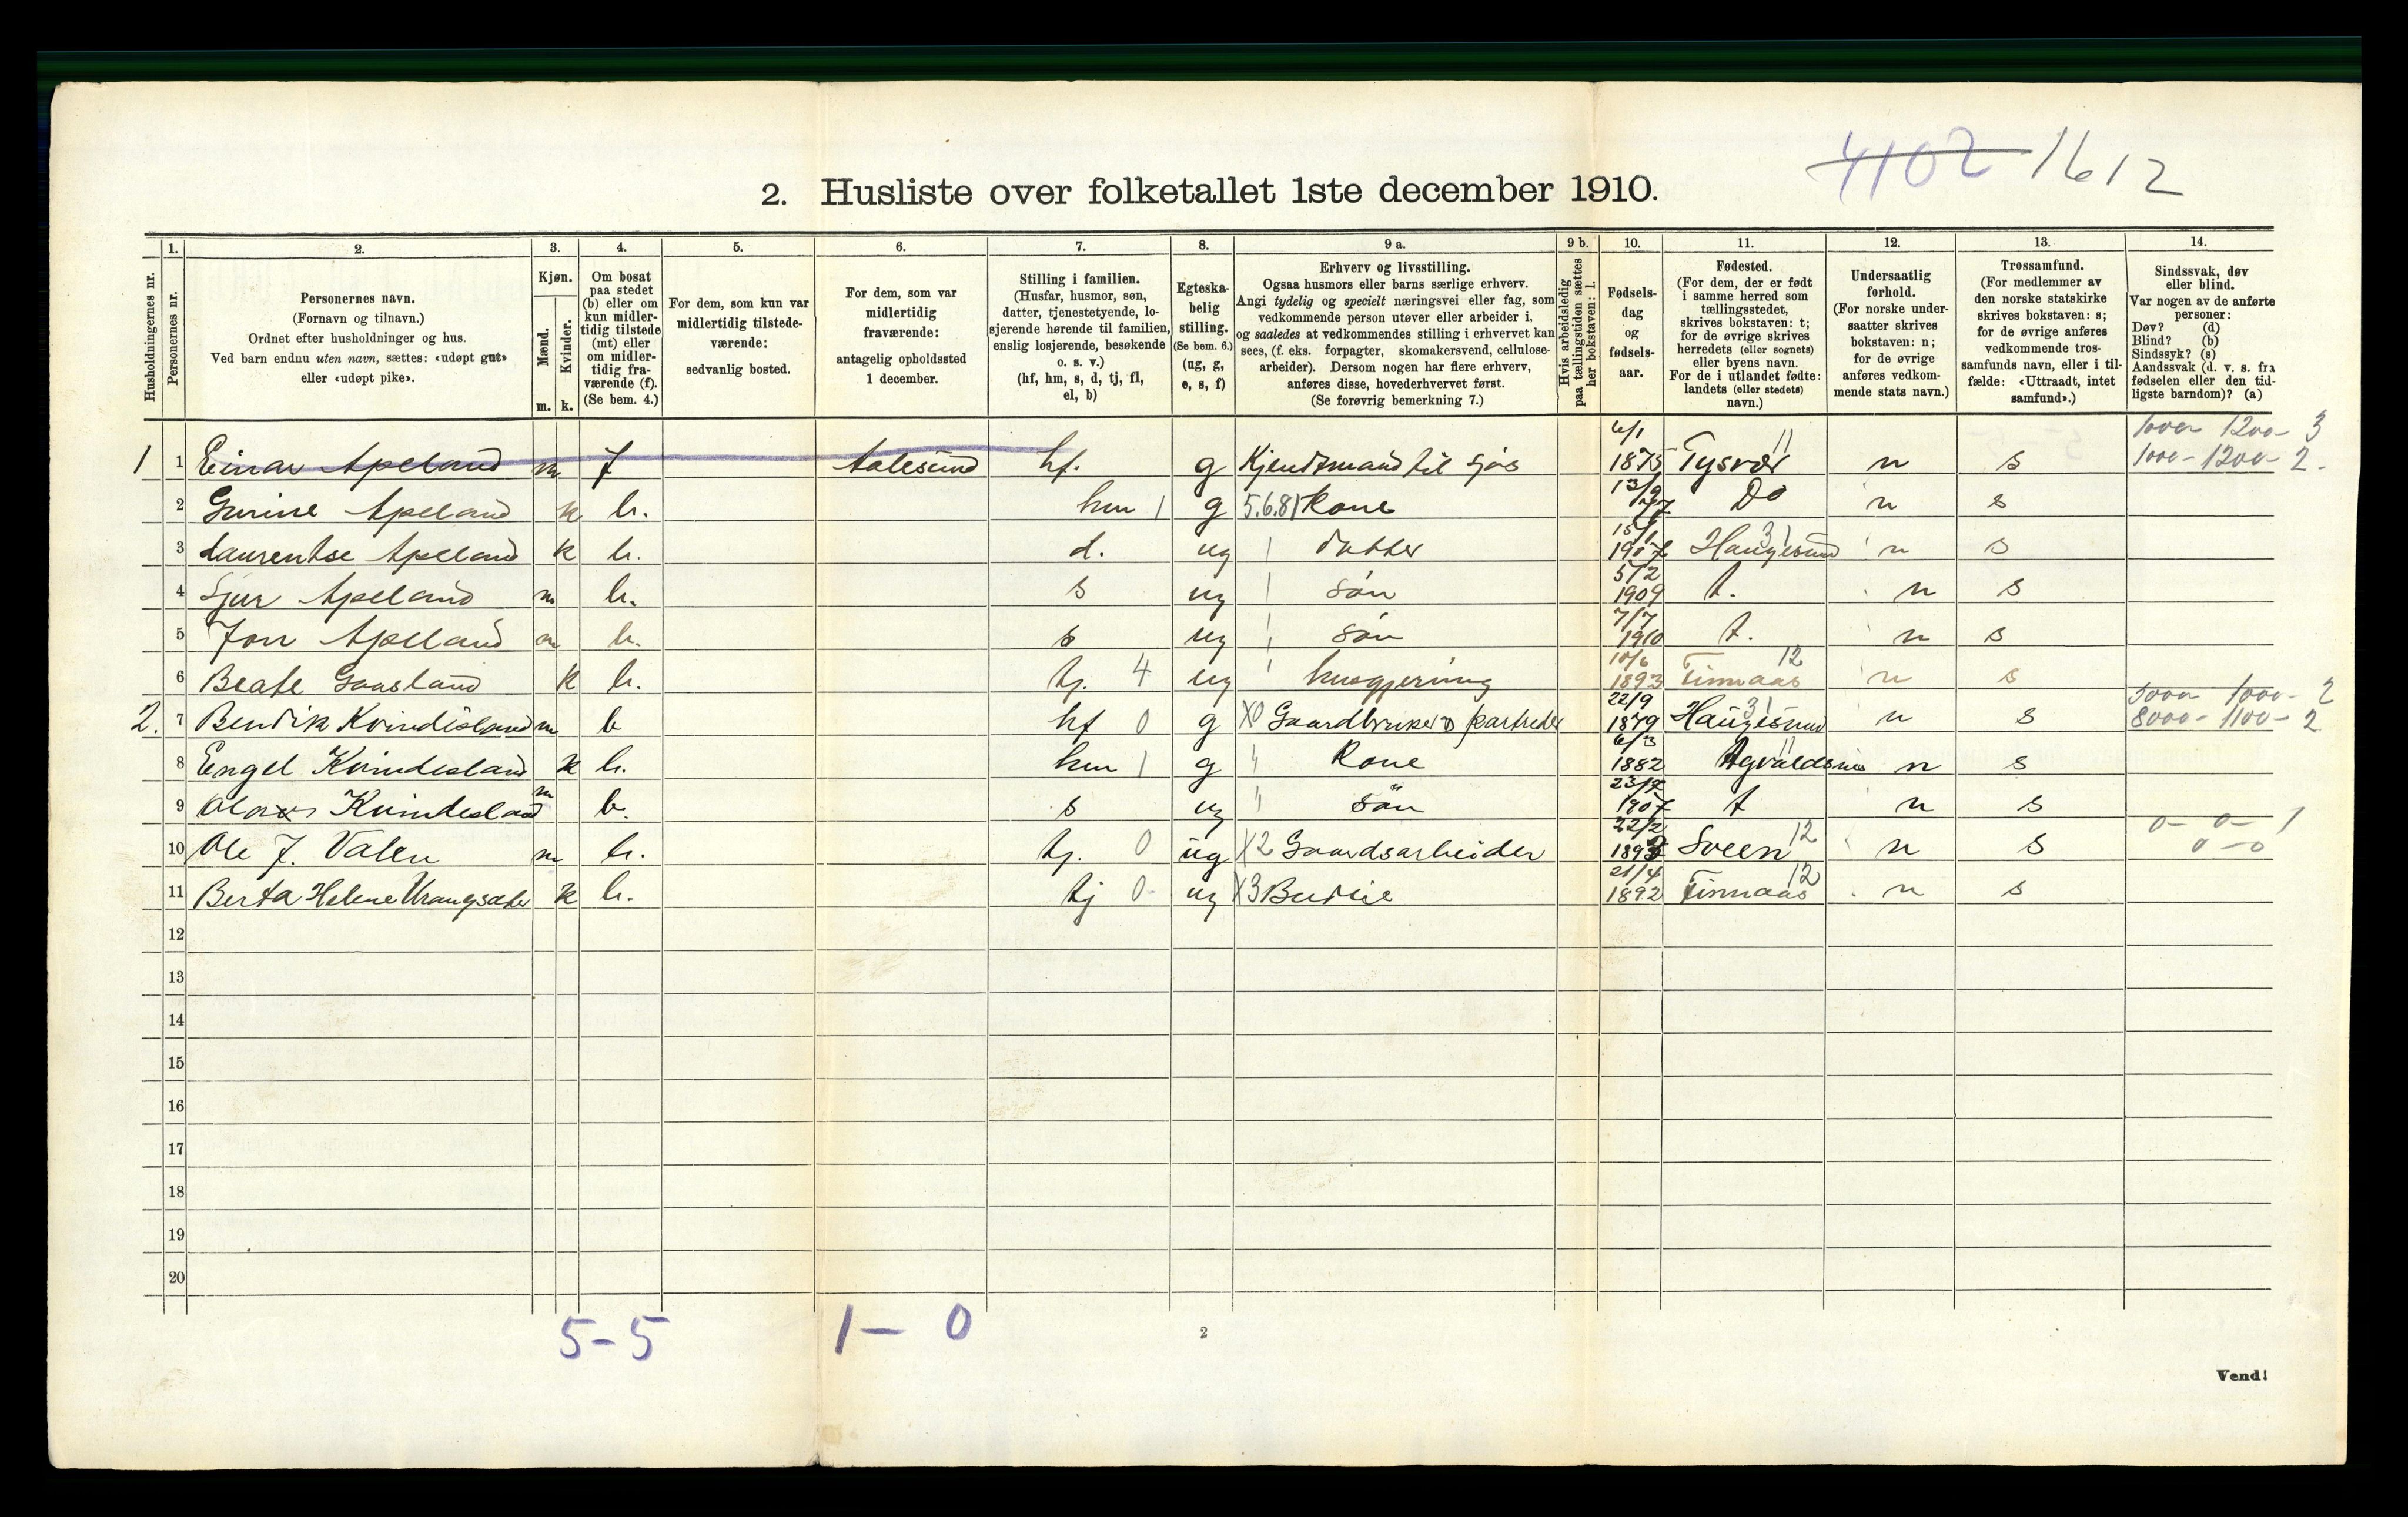 4102 1612
2. Husliste over folketallet 1ste december 1910.
Husholdningernes nr.
1. Personernes nr.
2. Personernes navn. (Fornavn og tilnavn.) Ordnet efter husholdninger og hus. Ved barn endnu uten navn, sættes: «udøpt gut» eller «udøpt pike».
3. Kjøn. Mænd. m. Kvinder. k.
4. Om bosat paa stedet (b) eller om kun midler- tidig tilstede (mt) eller om midler- tidig fra- værende (f). (Se bem. 4.)
5. For dem, som kun var midlertidig tilstede- værende: sedvanlig bosted.
6. For dem, som var midlertidig fraværende: antagelig opholdssted 1 december.
7. Stilling i familien. (Husfar, husmor, søn, datter, tjenestetyende, lo- sjerende hørende til familien, enslig losjerende, besøkende o. s. v.) (hf, hm, s, d, tj, fl, el, b)
8. Egteska- belig stilling. (Se bem. 6.) (ug, g, e, s, f)
9 a. Erhverv og livsstilling. Ogsaa husmors eller barns særlige erhverv. Angi tydelig og specielt næringsvei eller fag, som vedkommende person utøver eller arbeider i, og saaledes at vedkommendes stilling i erhvervet kan sees, (f. eks. forpagter, skomakersvend, cellulose- arbeider). Dersom nogen har flere erhverv, anføres disse, hovederhvervet først. (Se forøvrig bemerkning 7.)
9 b. Hvis arbeidsledig paa tællingstiden sættes her bokstaven: l.
10. Fødsels- dag og fødsels- aar.
11. Fødested. (For dem, der er født i samme herred som tællingsstedet, skrives bokstaven: t; for de øvrige skrives herredets (eller sognets) eller byens navn. For de i utlandet fødte: landets (eller stedets) navn.)
12. Undersaatlig forhold. (For norske under- saatter skrives bokstaven: n; for de øvrige anføres vedkom- mende stats navn.)
13. Trossamfund. (For medlemmer av den norske statskirke skrives bokstaven: s; for de øvrige anføres vedkommende tros- samfunds navn, eller i til- fælde: «Uttraadt, intet samfund».)
14. Sindssvak, døv eller blind. Var nogen av de anførte personer: Døv? (d) Blind? (b) Sindssyk? (s) Aandssvak (d. v. s. fra fødselen eller den tid- ligste barndom)? (a)
1 1 Einar Apeland m f Aalesund hf. g Kjendtmand til sjøs 6/1 1875 Tysvær 11 n s 1000- 1200- 2.
2 Gurine Apeland k b. hm 1 g 5.6.81 Kone 13/9 Do n s
3 Laurentse Apeland k b. d. ug datter 15/1 1907 Haugesund 31 n s
4 Sjur Apeland m b. s ug søn 5/2 1909 t. n s
5 Jon Apeland m b. s ug søn 7/7 1910 t. n s
6 Beate Gaasland k b. tj. 4 ug husgjerning 10/6 1893 Finnaas 12 n s
2. 7 Bendik Kvindesland m b hf 0 g X0 Gaardbruker & partreder 22/9 1879 Haugesund 31 n s 5000 1000- 2 8000- 1100- 2
8 Engel Kvindesland k b. hm 1 g " Kone 6/3 1882 Agvaldsnes 11 n s
9 Kvindesland m b. s ug " søn 1907 t n s
10 Ole J. Valen m b. tj. 0 ug X2 Gaardsarbeider 22/2 Sveen 12 n s 0- 0- 1 0-0
11 Berta Helene Vrangsæter k b. tj 0- ug X3 Budeie 21/4 1892 Finnaas 12 n s
12
13
14
15
16
17
18
19
20
5-5 1- 0
2
Vend!